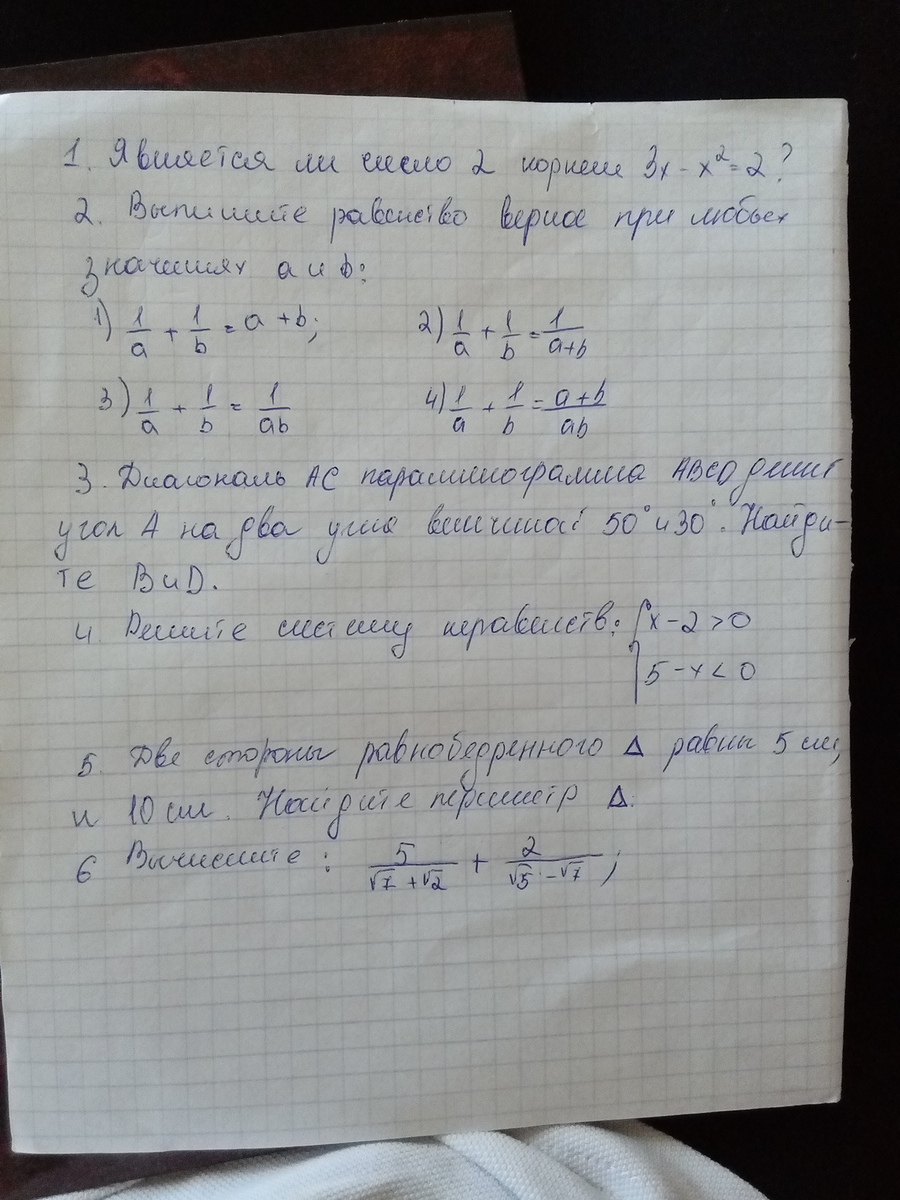 1. Является ли число 2 корнем 3x - x² = 2?
2. Выпишите равенство верное при любых
значениях a и b:
1) 1/a + 1/b = a + b; 2) 1/a + 1/b = 1/(a+b)
3) 1/a + 1/b = 1/ab 4) 1/a + 1/b = (a+b)/ab
3. Диагональ AC параллелограмма ABCD делит
угол A на два угла величиной 50° и 30°. Найди-
те B и D.
4 Решите систему неравенств: { x - 2 > 0
5 - x < 0
5. Две стороны равнобедренного Δ равны 5 см,
и 10 см. Найдите периметр Δ.
6 Вычислите: 5/(√7 + √2) + 2/(√5 - √7);